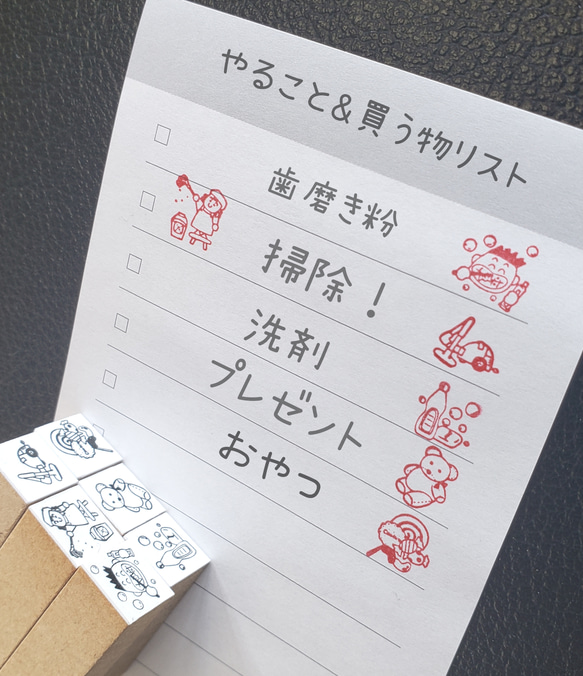 やること&買う物リスト
歯磨き粉
掃除！
洗剤
プレゼント
おやつ